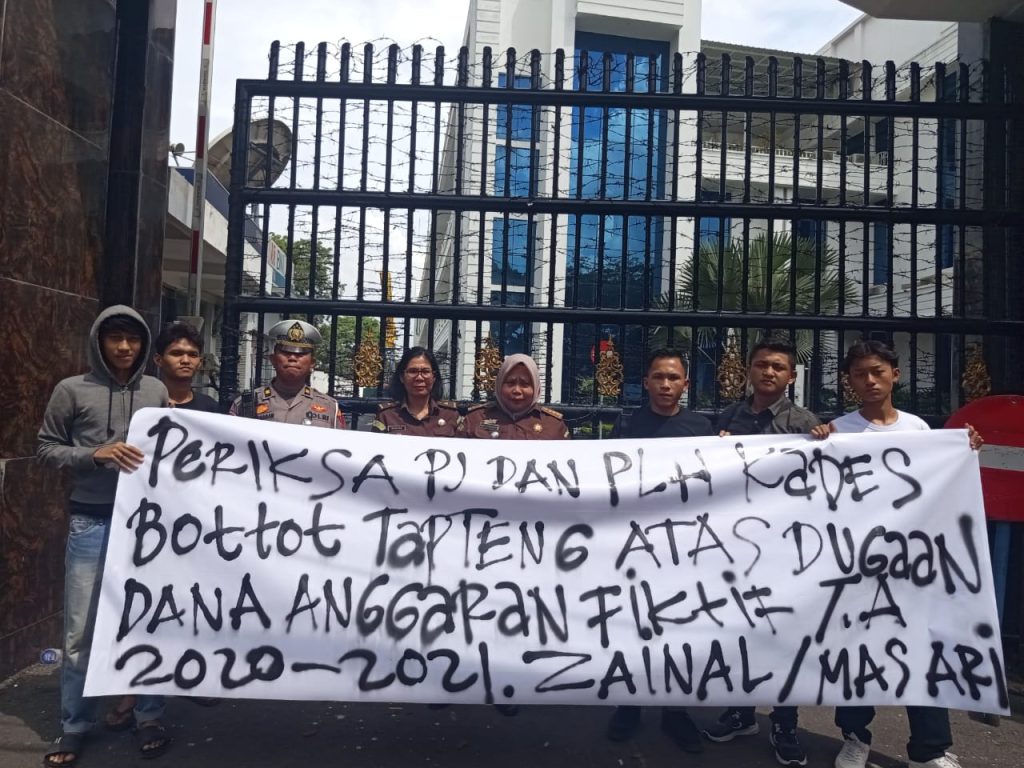 PERIKSA PJ DAN PLH KADES
Bottot TAPTENG ATAS DUGAAN
DANA ANGGARAN FiktiF T.A
2020-2021. ZAINAL/MASARi